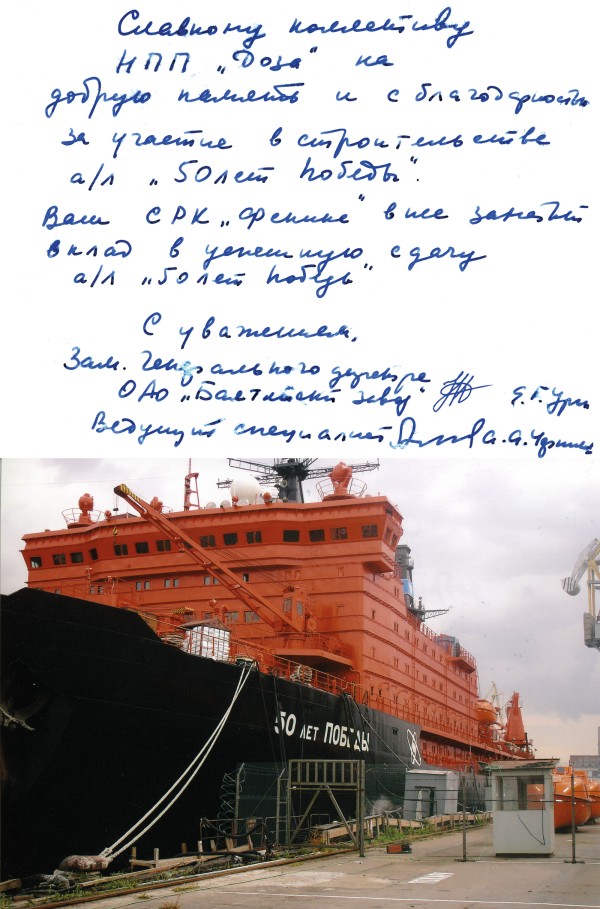 Славному коллективу
НПП „Доза" на
добрую память и с благодарностью
за участие в строительстве
а/л „50 лет Победы".
Ваш СРК „Фенике" внёс заметный
вклад в успешную сдачу
а/л „50 лет Победы"
С уважением,
Зам. Генерального директора
ОАО „Балтийский завод"
Ведущий специалист А.А.
50 ЛЕТ ПОБЕДЫ